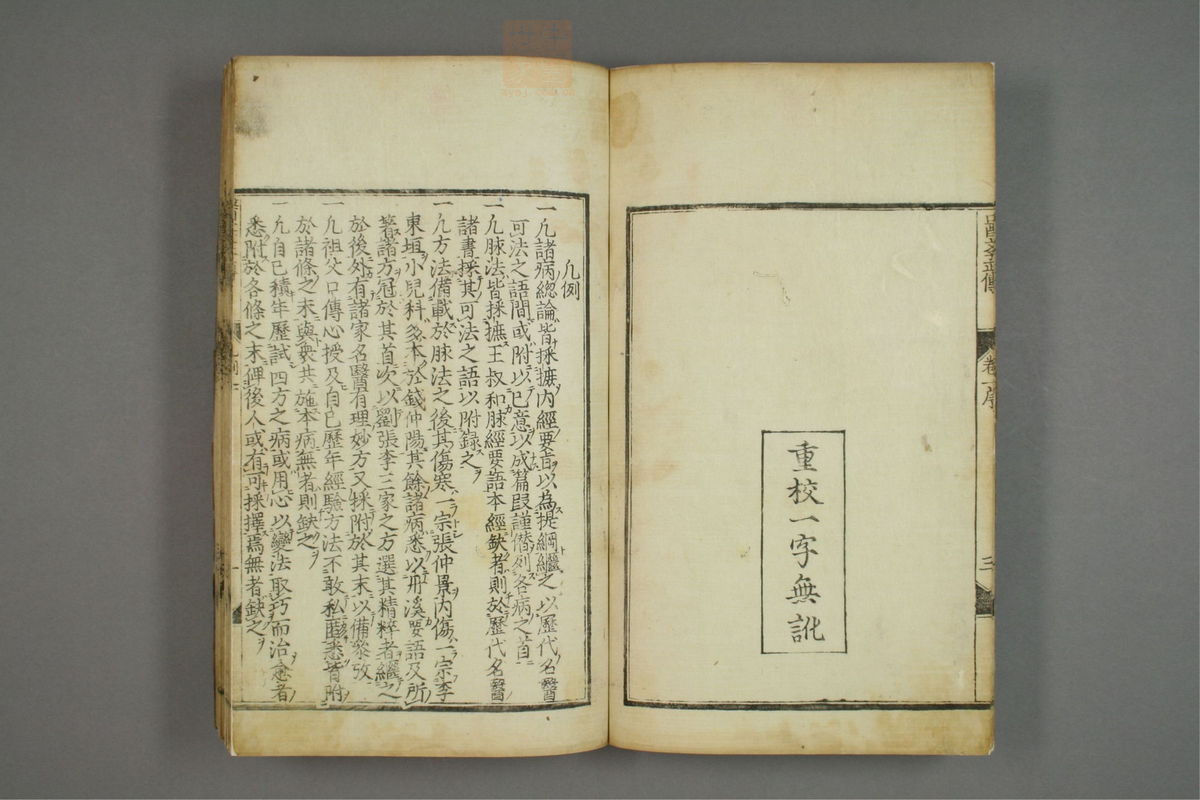 醫學正傳 卷一序 三
重校一字無訛
凡例
一凡諸病總論皆採摭內經要旨以為提綱繼之以歷代名醫
可法之語間或附以己意以成篇段謹僭列各病之首
一凡脉法皆採摭王叔和脉經要語本經缺者則於歷代名醫
諸書採其可法之語以附錄之
一凡方法備載於脉法之後其傷寒一宗張仲景內傷一宗李
東垣小兒科多本於錢仲陽其餘諸病悉以丹溪要語及所
著諸方冠於其首次以劉張李三家之方選其精粹者繼之
於後外有諸家名醫有理妙方又採附於其末以備叅攷
一凡祖父口傳心授及自己歷年經驗方法不敢私匿悉皆附
於諸條之末與衆共施本病無者則缺之
一凡自己積年歷試四方之病或用心以變法取巧而治愈者
悉附於各條之末俾後人或有可採擇焉無者缺之
凡例 一